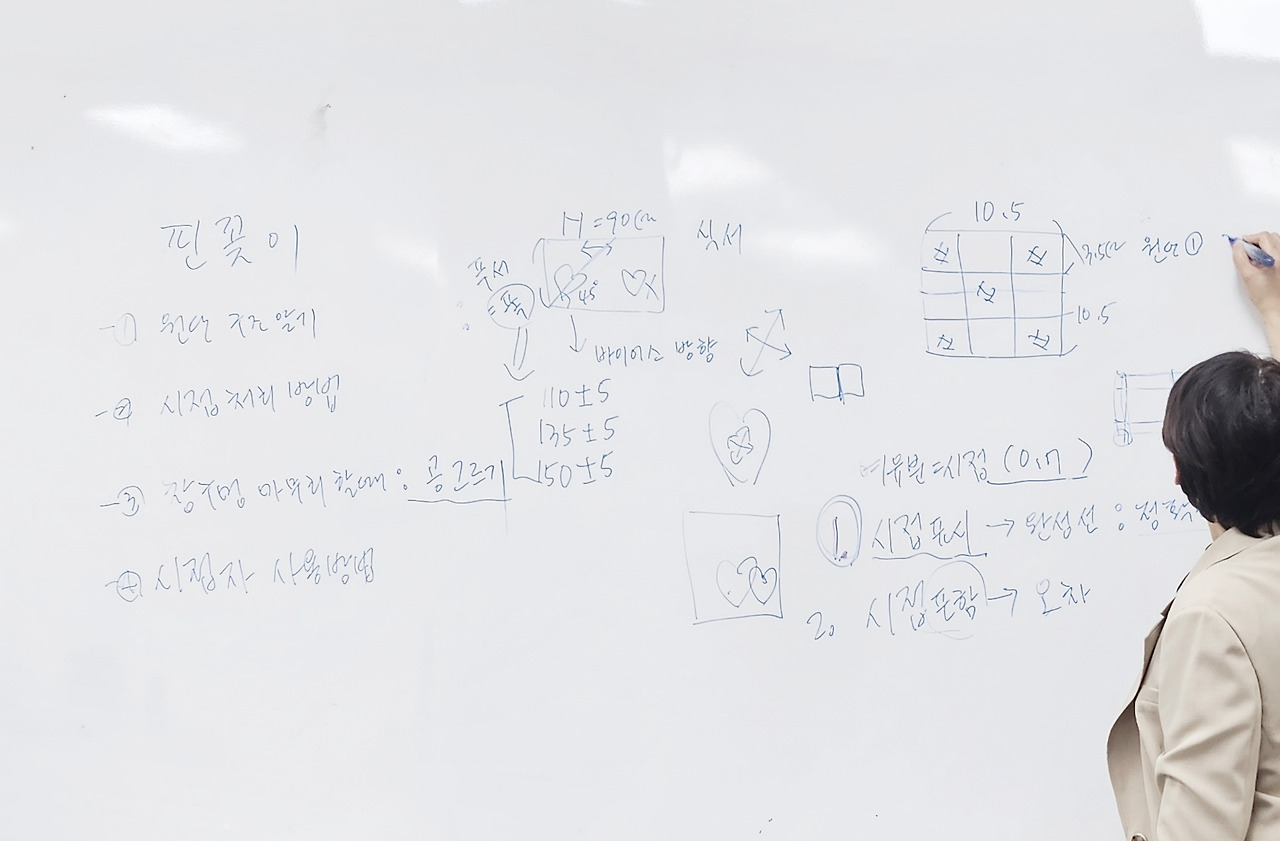 핀꽂이
① 원단 구조 알기
② 시접 처리 방법
③ 창구멍 마무리 할때 : 공그르기
④ 시접자 사용방법
H=90cm
식서
푸서
=폭
45°
바이어스 방향
110±5
135±5
150±5
10.5
3.5cm 원단①
10.5
여유분=시접 (0.7)
1. 시접표시 → 완성선 :
2. 시접포함 → 오차